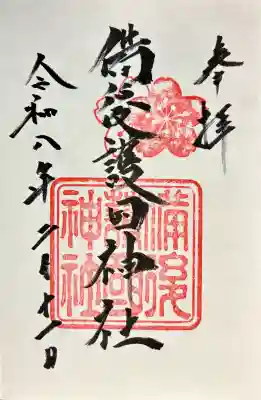 奉拝
備後護国神社
備後護國神社
令和八年 月 日